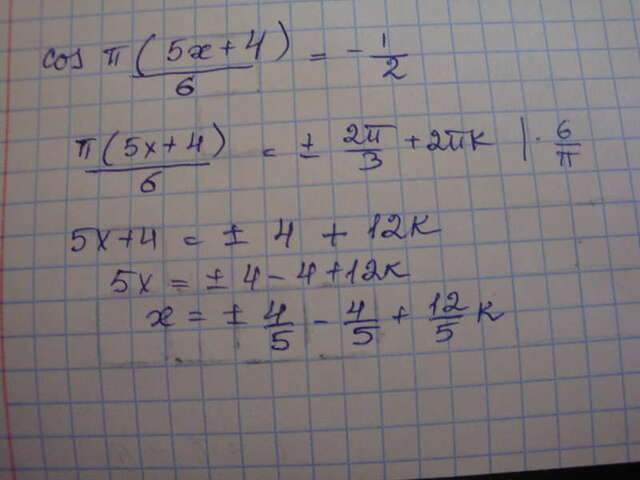 cos π(5x+4)/6 = - 1/2
π(5x+4)/6 = ± 2π/3 + 2πk | · 6/π
5x+4 = ± 4 + 12k
5x = ± 4 - 4 + 12k
x = ± 4/5 - 4/5 + 12/5 k